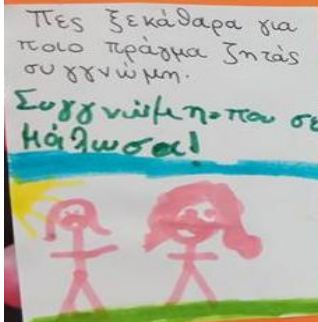 Πες ξεκάθαρα για
ποιο πράγμα ζητάς
συγγνώμη.
Συγγνώμη που σε
μάλωσα!